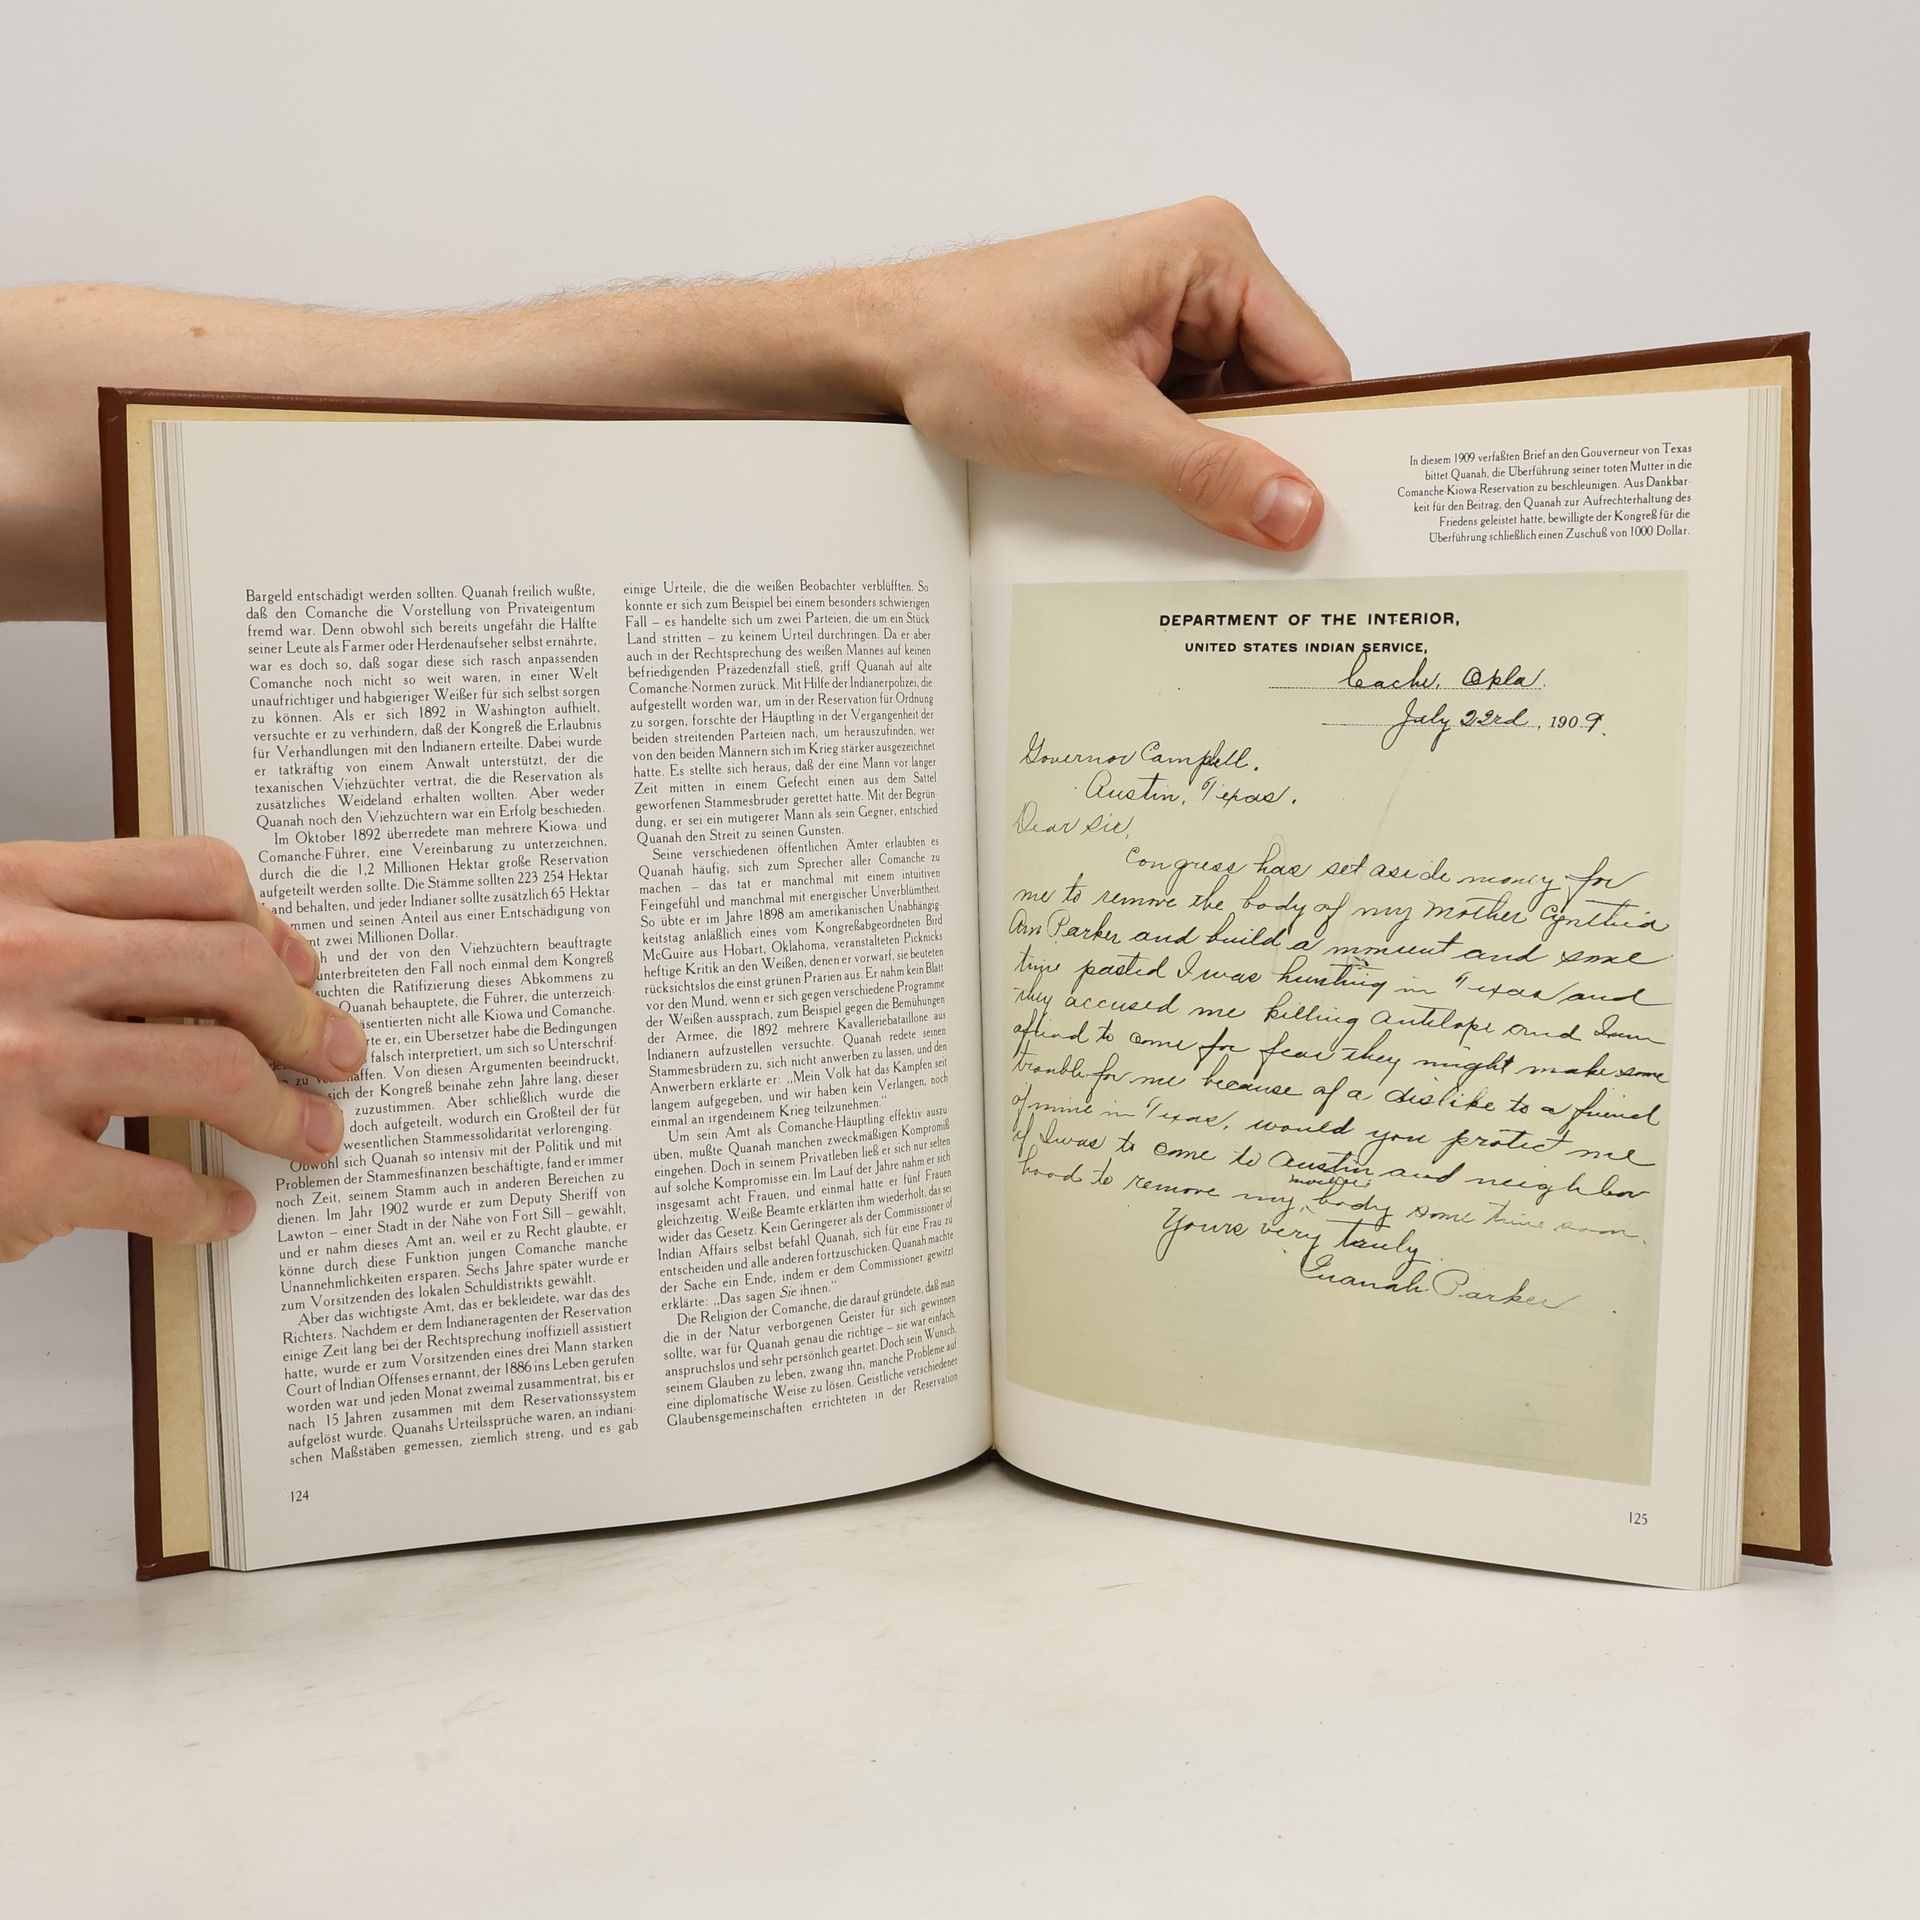 Bargeld entschädigt werden sollten. Quanah freilich wußte,
daß den Comanche die Vorstellung von Privateigentum
fremd war. Denn obwohl sich bereits ungefähr die Hälfte
seiner Leute als Farmer oder Herdenaufseher selbst ernährte,
war es doch so, daß sogar diese sich rasch anpassenden
Comanche noch nicht so weit waren, in einer Welt
unaufrichtiger und habgieriger Weißer für sich selbst sorgen
zu können. Als er sich 1892 in Washington aufhielt,
versuchte er zu verhindern, daß der Kongreß die Erlaubnis
für Verhandlungen mit den Indianern erteilte. Dabei wurde
er tatkräftig von einem Anwalt unterstützt, der die
texanischen Viehzüchter vertrat, die die Reservation als
zusätzliches Weideland erhalten wollten. Aber weder
Quanah noch den Viehzüchtern war ein Erfolg beschieden.
Im Oktober 1892 überredete man mehrere Kiowa- und
Comanche-Führer, eine Vereinbarung zu unterzeichnen,
durch die die 1,2 Millionen Hektar große Reservation
aufgeteilt werden sollte. Die Stämme sollten 223 254 Hektar
Land behalten, und jeder Indianer sollte zusätzlich 65 Hektar
mmen und seinen Anteil aus einer Entschädigung von
mt zwei Millionen Dollar.
h und der von den Viehzüchtern beauftragte
unterbreiteten den Fall noch einmal dem Kongreß
suchten die Ratifizierung dieses Abkommens zu
Quanah behauptete, die Führer, die unterzeich-
äsentierten nicht alle Kiowa und Comanche.
rte er, ein Übersetzer habe die Bedingungen
falsch interpretiert, um sich so Unterschrif-
zu affen. Von diesen Argumenten beeindruckt,
sich der Kongreß beinahe zehn Jahre lang, dieser
zuzustimmen. Aber schließlich wurde die
doch aufgeteilt, wodurch ein Großteil der für
wesentlichen Stammessolidarität verlorenging.
Obwohl sich Quanah so intensiv mit der Politik und mit
Problemen der Stammesfinanzen beschäftigte, fand er immer
noch Zeit, seinem Stamm auch in anderen Bereichen zu
dienen. Im Jahr 1902 wurde er zum Deputy Sheriff von
Lawton – einer Stadt in der Nähe von Fort Sill – gewählt,
und er nahm dieses Amt an, weil er zu Recht glaubte, er
könne durch diese Funktion jungen Comanche manche
Unannehmlichkeiten ersparen. Sechs Jahre später wurde er
zum Vorsitzenden des lokalen Schuldistrikts gewählt.
Aber das wichtigste Amt, das er bekleidete, war das des
Richters. Nachdem er dem Indianeragenten der Reservation
einige Zeit lang bei der Rechtsprechung inoffiziell assistiert
hatte, wurde er zum Vorsitzenden eines drei Mann starken
Court of Indian Offenses ernannt, der 1886 ins Leben gerufen
worden war und jeden Monat zweimal zusammentrat, bis er
nach 15 Jahren zusammen mit dem Reservationssystem
aufgelöst wurde. Quanahs Urteilssprüche waren, an indiani-
schen Maßstäben gemessen, ziemlich streng, und es gab
einige Urteile, die die weißen Beobachter verblüfften. So
konnte er sich zum Beispiel bei einem besonders schwierigen
Fall – es handelte sich um zwei Parteien, die um ein Stück
Land stritten – zu keinem Urteil durchringen. Da er aber
auch in der Rechtsprechung des weißen Mannes auf keinen
befriedigenden Präzedenzfall stieß, griff Quanah auf alte
Comanche-Normen zurück. Mit Hilfe der Indianerpolizei, die
aufgestellt worden war, um in der Reservation für Ordnung
zu sorgen, forschte der Häuptling in der Vergangenheit der
beiden streitenden Parteien nach, um herauszufinden, wer
von den beiden Männern sich im Krieg stärker ausgezeichnet
hatte. Es stellte sich heraus, daß der eine Mann vor langer
Zeit mitten in einem Gefecht einen aus dem Sattel
geworfenen Stammesbruder gerettet hatte. Mit der Begrün-
dung, er sei ein mutigerer Mann als sein Gegner, entschied
Quanah den Streit zu seinen Gunsten.
Seine verschiedenen öffentlichen Ämter erlaubten es
Quanah häufig, sich zum Sprecher aller Comanche zu
machen – das tat er manchmal mit einem intuitiven
Feingefühl und manchmal mit energischer Unverblümtheit.
So übte er im Jahre 1898 am amerikanischen Unabhängig-
keitstag anläßlich eines vom Kongreßabgeordneten Bird
McGuire aus Hobart, Oklahoma, veranstalteten Picknicks
heftige Kritik an den Weißen, denen er vorwarf, sie beuteten
rücksichtslos die einst grünen Prärien aus. Er nahm kein Blatt
vor den Mund, wenn er sich gegen verschiedene Programme
der Weißen aussprach, zum Beispiel gegen die Bemühungen
der Armee, die 1892 mehrere Kavalleriebataillone aus
Indianern aufzustellen versuchte. Quanah redete seinen
Stammesbrüdern zu, sich nicht anwerben zu lassen, und den
Anwerbern erklärte er: „Mein Volk hat das Kämpfen seit
langem aufgegeben, und wir haben kein Verlangen, noch
einmal an irgendeinem Krieg teilzunehmen.“
Um sein Amt als Comanche-Häuptling effektiv auszu-
üben, mußte Quanah manchen zweckmäßigen Kompromiß
eingehen. Doch in seinem Privatleben ließ er sich nur selten
auf solche Kompromisse ein. Im Lauf der Jahre nahm er sich
insgesamt acht Frauen, und einmal hatte er fünf Frauen
gleichzeitig. Weiße Beamte erklärten ihm wiederholt, das sei
wider das Gesetz. Kein Geringerer als der Commissioner of
Indian Affairs selbst befahl Quanah, sich für eine Frau zu
entscheiden und alle anderen fortzuschicken. Quanah machte
der Sache ein Ende, indem er dem Commissioner gewitzt
erklärte: „Das sagen Sie ihnen.“
Die Religion der Comanche, die darauf gründete, daß man
die in der Natur verborgenen Geister für sich gewinnen
sollte, war für Quanah genau die richtige – sie war einfach,
anspruchslos und sehr persönlich geartet. Doch sein Wunsch,
seinem Glauben zu leben, zwang ihn, manche Probleme auf
eine diplomatische Weise zu lösen. Geistliche verschiedener
Glaubensgemeinschaften errichteten in der Reservation
124
In diesem 1909 verfaßten Brief an den Gouverneur von Texas
bittet Quanah, die Überführung seiner toten Mutter in die
Comanche-Kiowa-Reservation zu beschleunigen. Aus Dankbar-
keit für den Beitrag, den Quanah zur Aufrechterhaltung des
Friedens geleistet hatte, bewilligte der Kongreß für die
Überführung schließlich einen Zuschuß von 1000 Dollar.
DEPARTMENT OF THE INTERIOR,
UNITED STATES INDIAN SERVICE,
Cache, Okla.
July 22rd, 1909.
Governor Campbell.
Austin, Texas.
Dear Sir,
Congress has set aside money for
me to remove the body of my mother Cynthia
Ann Parker and build a monument and some
time pasted I was hunting in Texas and
they accused me killing antelope and I am
afraid to come for fear they might make some
trouble for me because of a dislike to a friend
of mine in Texas, would you protect me
if I was to come to Austin and neighbor
hood to remove my mother's body some time soon.
Yours very truly
Quanah Parker
125